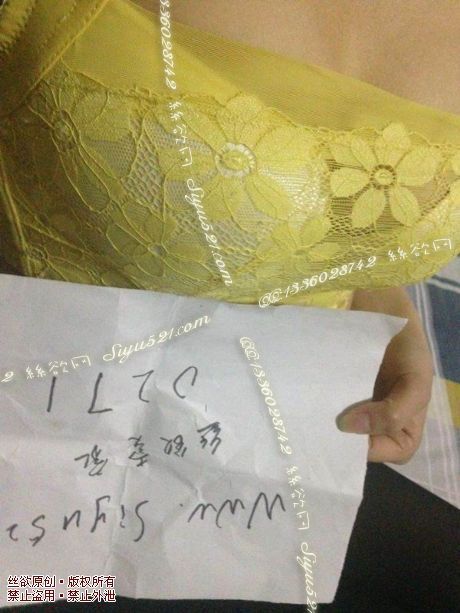 1336028742 絲欲网 Siyu521.com
@@:1336028742 絲欲网
2 絲欲网 Siyu521.com
@@:1336028742 絲欲网 Siyu521.com
Www. Siyu52
丝欲
丝欲原创·版权所有
禁止盗用·禁止外泄